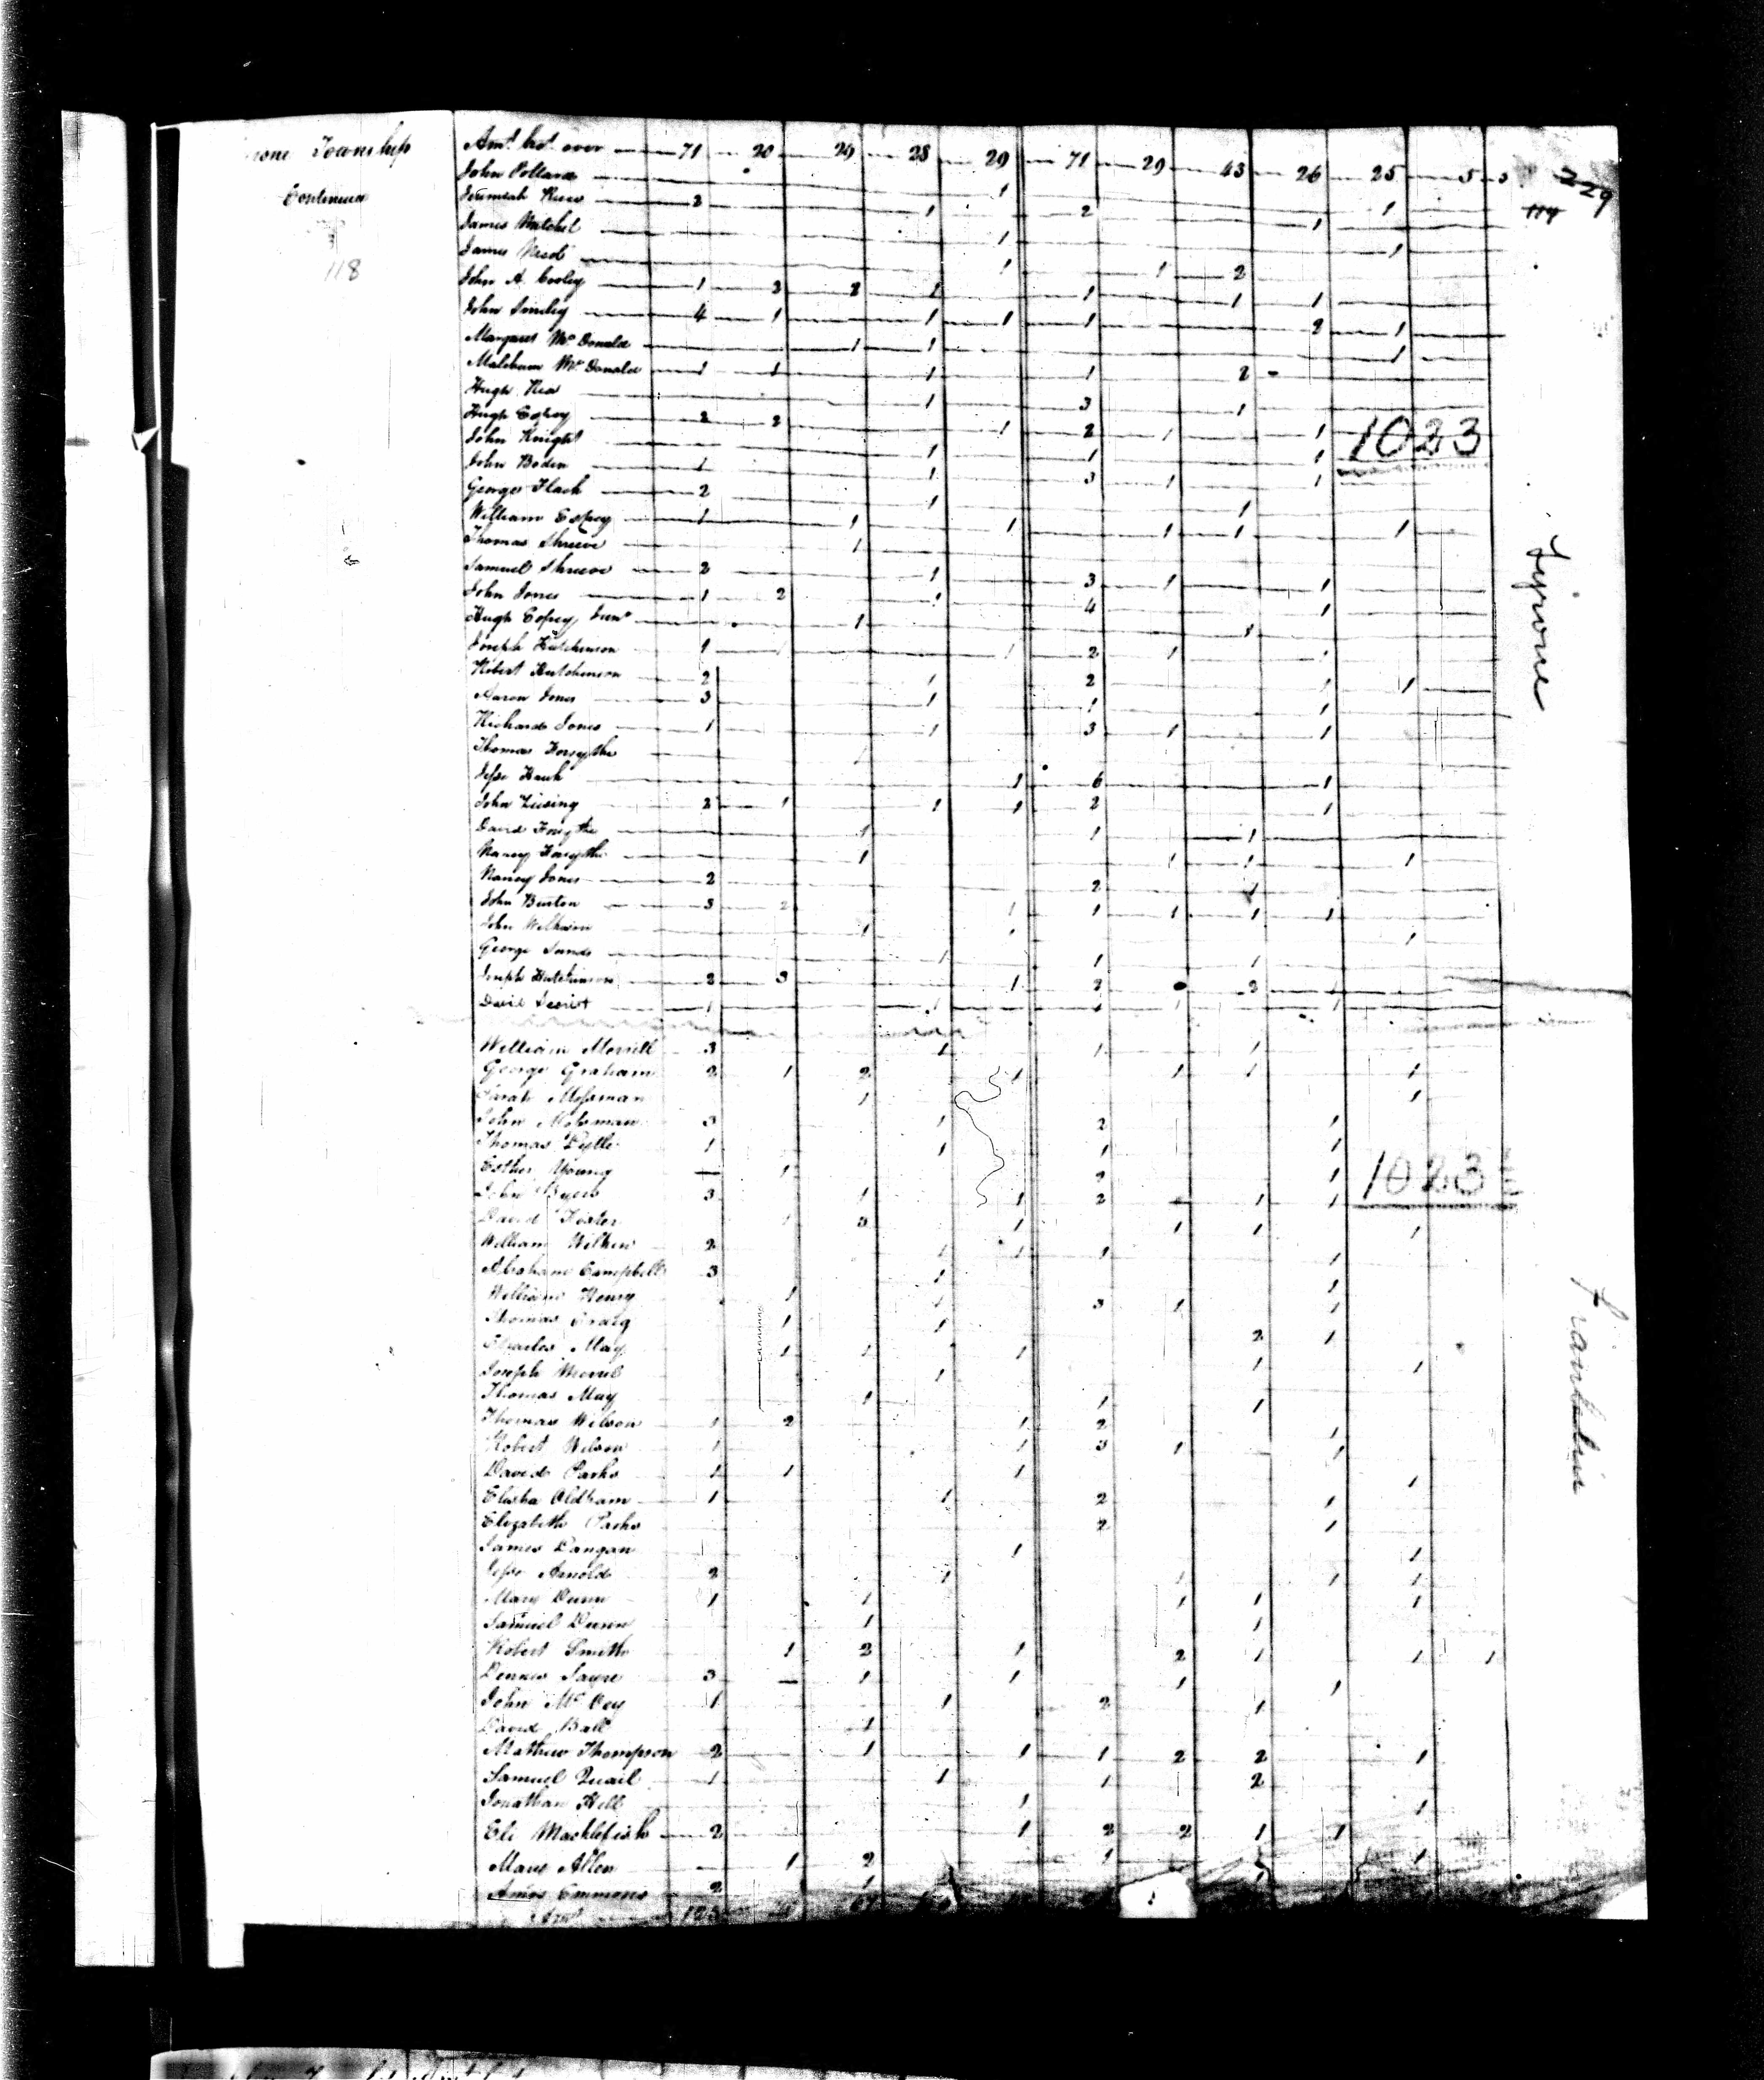 Township
Continued
118
229
114
Amt. brt. over 71 20 29 28 29 71 29 43 26 25 5 3
John Pollard 1
Jeremiah 2 1 2 1 1
James Mitchel 1 1
James 1 1 2
John A. Cooley 1 2 2 1 1 1 1
John Smiley 4 1 1 1 1 2 1
Margaret McDonald 1 1 1
Malcham McDonald 1 1 1 1 2
Hugh Rea 1 3 1
Hugh Espey 2 2 1 2 1 1
1023
John Knight 1 1 1
John Boden 1 1 3 1 1
George Flack 2 1 1
William Espey 1 1 1 1 1 1
Thomas Shreve 1
Samuel Shreve 2 1 3 1 1
John Jones 1 2 1 4 1
Hugh Espey Junr 1 1
Tyrone
Joseph Hutchinson 1 1 2 1 1
Robert Hutchinson 2 1 2 1 1
Aaron Jones 3 1 1 1
Richard Jones 1 1 3 1 1
Thomas Forsythe
Jesse 1 6 1
John 2 1 1 1 2 1
David Forsythe 1 1 1
Nancy Forsythe 1 1 1 1
Nancy Jones 2 2 1
John Burton 3 2 1 1 1 1 1
John 1 1 1
George Sands 1 1 1
Joseph Hutchinson 2 3 1 2 2 1
David 1 1 1 1 1
William Merrill 3 1 1 1
George Graham 2 1 2 1 1 1 1
Sarah Mossman 1 1
John Mossman 3 1 2 1
Thomas 1 1 1 1
Esther Young 1 2 1
1023
John Byers 3 1 1 2 1 1
David Foster 1 3 1 1 1 1
William Wilkin 2 1 1 1 1
Abraham Campbell 3 1 1
William Henry 1 1 3 1 1
Franklin
Thomas Craig 1 1 2 1
Charles May 1 1 1 1 1
Joseph Merril 1
Thomas May 1 1 1
Thomas Wilson 1 2 1 2 1
Robert Wilson 1 1 3 1 1
David Parks 1 1 1 1
Elisha Oldham 1 1 2 1
Elizabeth Parks 2 1
James Dangan 1 1
Jesse Arnold 2 1 1 1 1
Mary Dunn 1 1 1 1 1
Samuel Dunn 1 1
Robert Smith 1 2 1 2 1 1 1
Dennis Sayre 3 1 1 1 1
John McVey 1 1 2 1
David Ball 1
Mathew Thompson 2 1 1 1 2 2 1
Samuel Quail 1 1 1 2
Jonathan Hill 1 1
Eli 2 1 2 2 1 1
Allen 1 2 1 1
Amos Emmons 2 1 1
Amt